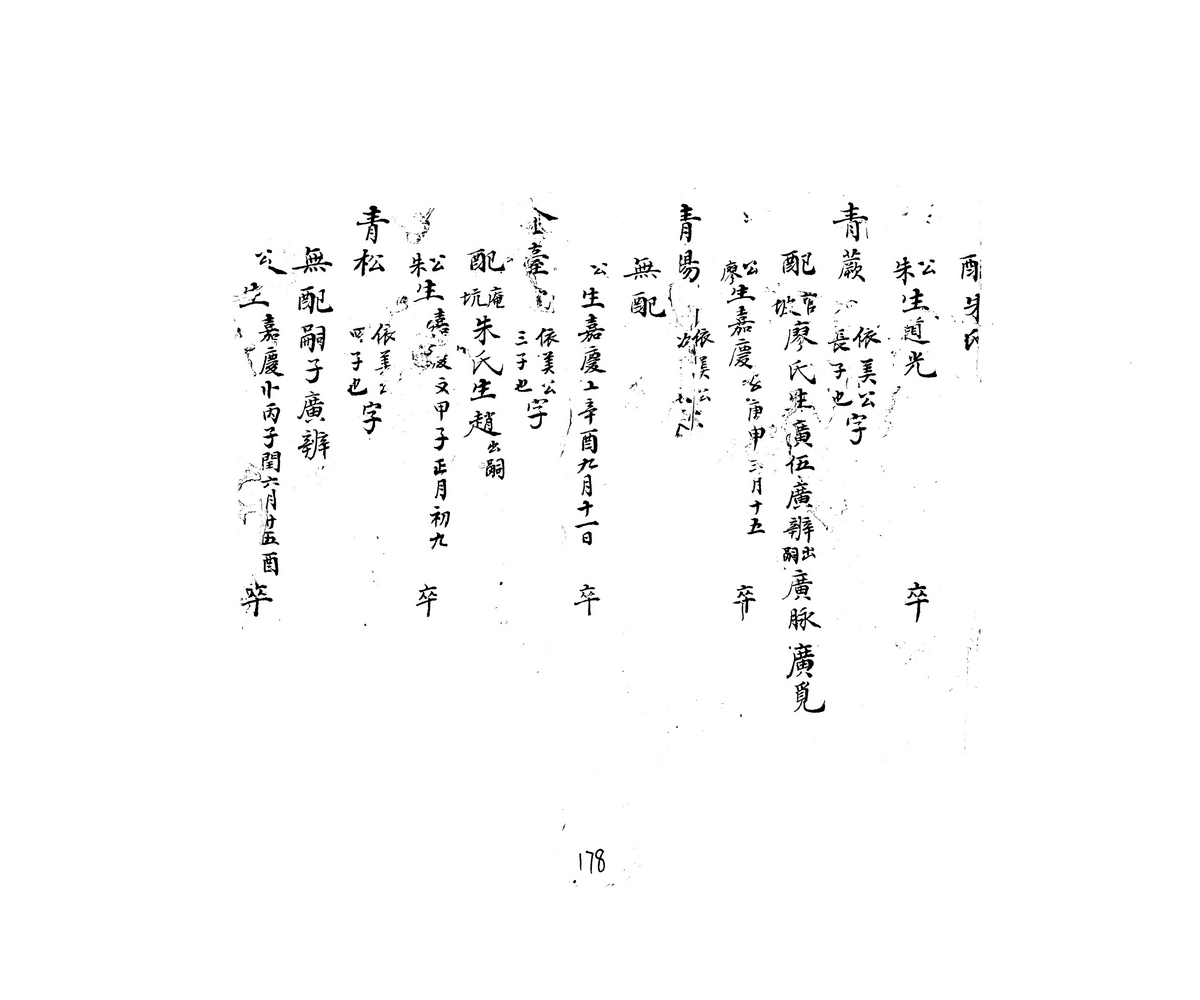 配朱氏
公朱生道光 卒
青蕨 依美公長子也字
配官坡廖氏生廣伍廣辦出嗣廣脉廣覓
公廖生嘉慶 庚申三月十五 卒
青陽 依美公
無配
公生嘉慶 辛酉九月十一日 卒
臺 依美公三子也字
配庵坑朱氏生趙出嗣
公朱生嘉 甲子正月初九 卒
青松 依美公四子也字
無配嗣子廣辦
公生嘉慶廿丙子閏六月廿五酉 卒
178